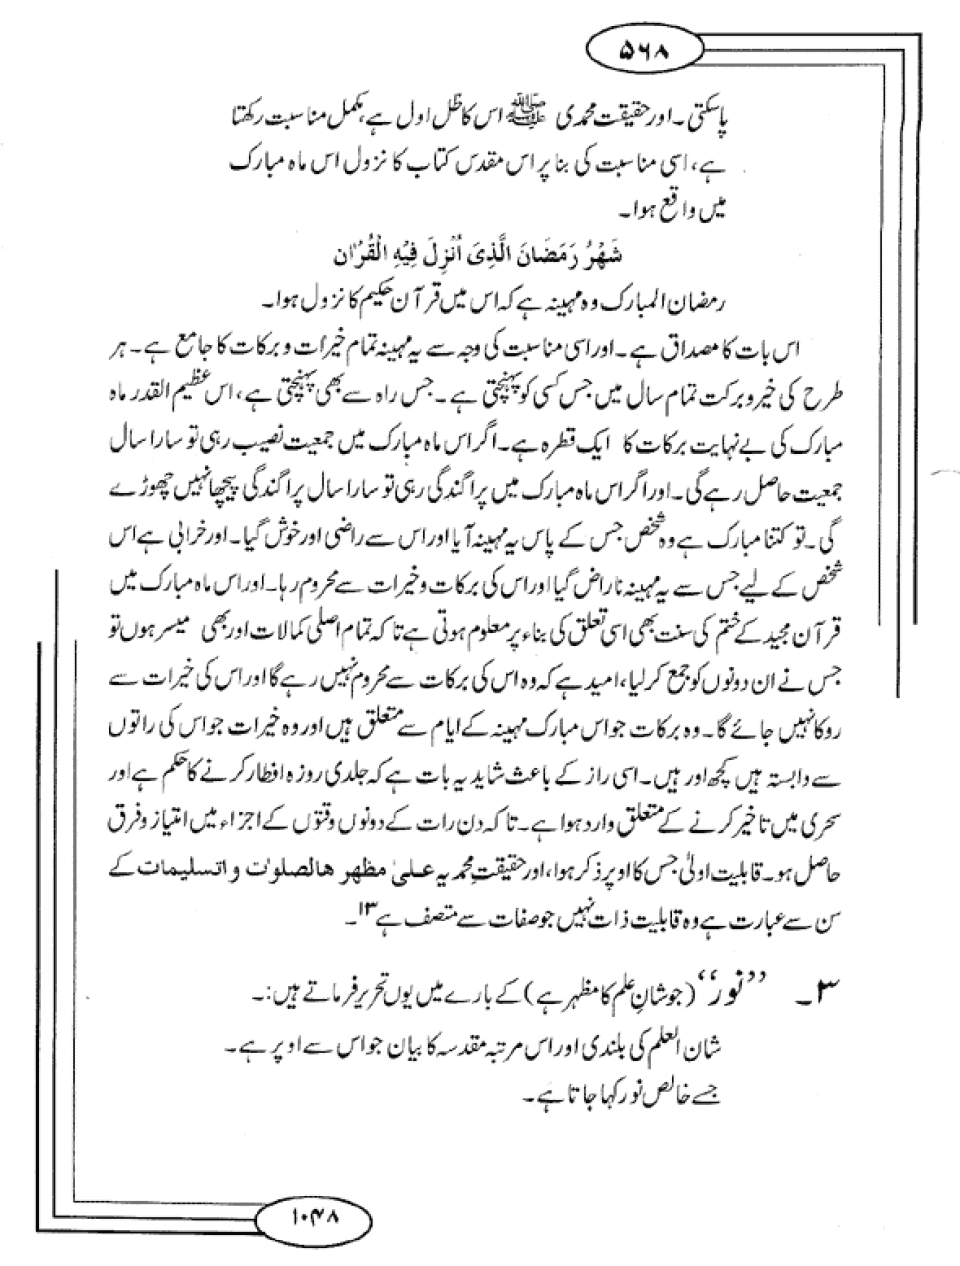 ۵۶۸
پاسکتی۔ اور حقیقت محمدی ﷺ اس کا ظل اول ہے، مکمل مناسبت رکھتا
ہے، اسی مناسبت کی بنا پر اس مقدس کتاب کا نزول اس ماہ مبارک
میں واقع ہوا۔
شَهْرُ رَمَضَانَ الَّذِیَ اُنْزِلَ فِیْهِ الْقُرْاٰن
رمضان المبارک وہ مہینہ ہے کہ اس میں قرآن حکیم کا نزول ہوا۔
اس بات کا مصداق ہے۔ اور اسی مناسبت کی وجہ سے یہ مہینہ تمام خیرات و برکات کا جامع ہے۔ ہر
طرح کی خیر و برکت تمام سال میں جس کسی کو پہنچتی ہے۔ جس راہ سے بھی پہنچتی ہے، اس عظیم القدر ماہ
مبارک کی بے نہایت برکات کا ایک قطرہ ہے۔ اگر اس ماہ مبارک میں جمعیت نصیب رہی تو سارا سال
جمعیت حاصل رہے گی۔ اور اگر اس ماہ مبارک میں پراگندگی رہی تو سارا سال پراگندگی پیچھا نہیں چھوڑے
گی۔ تو کتنا مبارک ہے وہ شخص جس کے پاس یہ مہینہ آیا اور اس سے راضی اور خوش گیا۔ اور خرابی ہے اس
شخص کے لیے جس سے یہ مہینہ ناراض گیا اور اس کی برکات و خیرات سے محروم رہا۔ اور اس ماہ مبارک میں
قرآن مجید کے ختم کی سنت بھی اسی تعلق کی بناء پر معلوم ہوتی ہے تاکہ تمام اصلی کمالات اور بھی میسر ہوں تو
جس نے ان دونوں کو جمع کر لیا، امید ہے کہ وہ اس کی برکات سے محروم نہیں رہے گا اور اس کی خیرات سے
روکا نہیں جائے گا۔ وہ برکات جو اس مبارک مہینہ کے ایام سے متعلق ہیں اور وہ خیرات جو اس کی راتوں
سے وابستہ ہیں کچھ اور ہیں۔ اسی راز کے باعث شاید یہ بات ہے کہ جلدی روزہ افطار کرنے کا حکم ہے اور
سحری میں تاخیر کرنے کے متعلق وارد ہوا ہے۔ تاکہ دن رات کے دونوں وقتوں کے اجزاء میں امتیاز و فرق
حاصل ہو۔ قابلیت اولیٰ جس کا اوپر ذکر ہوا، اور حقیقتِ محمدیہ علیٰ مظہر ھالصلوٰت و اتسلیمات کے
سن سے عبارت ہے وہ قابلیت ذات نہیں جو صفات سے متصف ہے۱۳۔
۳۔ ”نور“ (جو شانِ علم کا مظہر ہے) کے بارے میں یوں تحریر فرماتے ہیں:۔
شان العلم کی بلندی اور اس مرتبہ مقدسہ کا بیان جو اس سے اوپر ہے۔
جسے خالص نور کہا جاتا ہے۔
۱۰۴۸